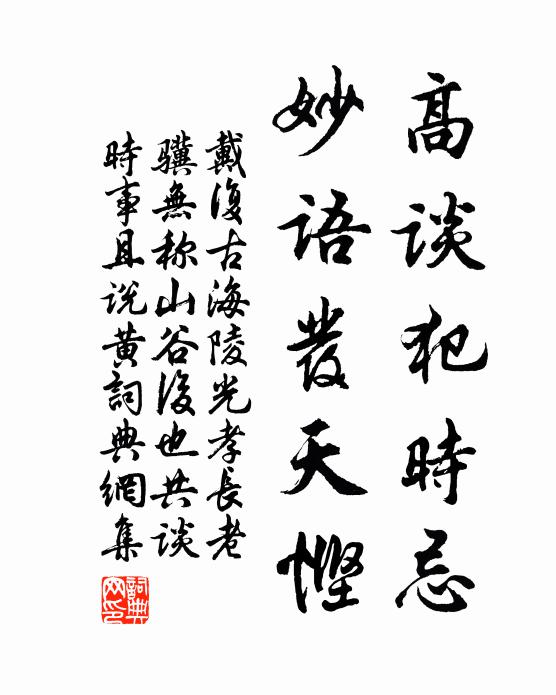 高談犯時忌
妙語發天慳
戴復古海陵光孝長老
驥無称山谷後也共談
時事且说黄詞典網集
詞典網印